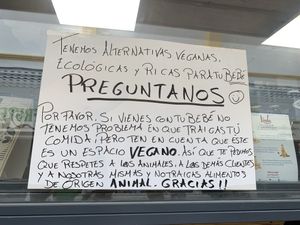 TENEMOS ALTERNATIVAS VEGANAS,
ECOLÓGICAS Y RICAS PARA TU BEBÉ
PREGUNTANOS
POR FAVOR, SI VIENES CON TU BEBÉ NO
TENEMOS PROBLEMA EN QUE TRAIGAS TÚ
COMIDA ¡PERO TEN EN CUENTA QUE ÉSTE
ES UN ESPACIO VEGANO. ASÍ QUE TE PEDIMOS
QUE RESPETES A LOS ANIMALES, A LOS DEMÁS CLIENTES
Y A NOSOTRAS MISMAS Y NO TRAIGAS ALIMENTOS
DE ORIGEN ANIMAL. GRACIAS!!